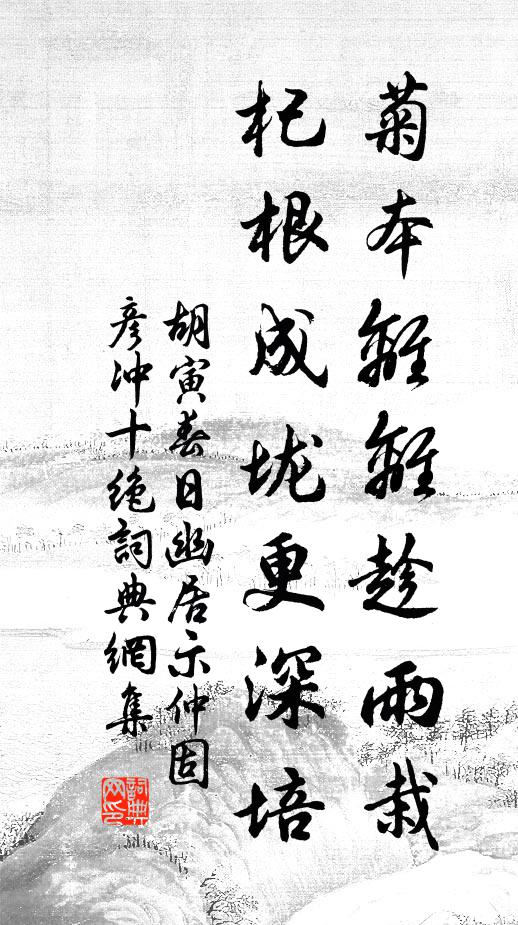 菊本離離趁雨栽
杞根成垅更深培
胡寅春日幽居示仲固
彦冲十绝詞典網集
詞典
网印